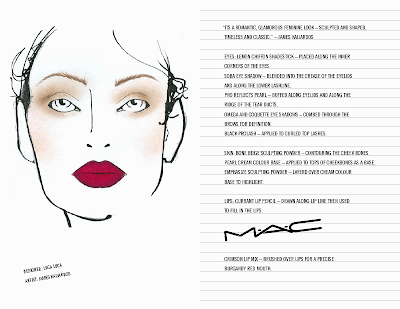 "IT'S A ROMANTIC, GLAMOROUS FEMININE LOOK – SCULPTED AND SHAPED,
TIMELESS AND CLASSIC." – JAMES KALIARDOS
EYES: LEMON CHIFFON SHADESTICK – PLACED ALONG THE INNER
CORNERS OF THE EYES
SOBA EYE SHADOW – BLENDED INTO THE CREASE OF THE EYELIDS
AND ALONG THE LOWER LASHLINE.
PRO REFLECTS PEARL – BUFFED ALONG EYELIDS AND ALONG THE
RIDGE OF THE TEAR DUCTS.
OMEGA AND COQUETTE EYE SHADOWS – COMBED THROUGH THE
BROWS FOR DEFINITION.
BLACK PROLASH – APPLIED TO CURLED TOP LASHES.
SKIN: BONE BEIGE SCULPTING POWDER – CONTOURING THE CHEEK BONES
PEARL CREAM COLOUR BASE – APPLIED TO TOPS OF CHEEKBONES AS A BASE.
EMPHASIZE SCULPTING POWDER – LAYERD OVER CREAM COLOUR
BASE TO HIGHLIGHT.
LIPS: CURRANT LIP PENCIL – DRAWN ALONG LIP LINE THEN USED
TO FILL IN THE LIPS.
M·A·C
CRIMSON LIP MIX – BRUSHED OVER LIPS FOR A PRECISE
BURGANDY RED MOUTH.
DESIGNER: LUCA LUCA
ARTIST: JAMES KALIARDOS